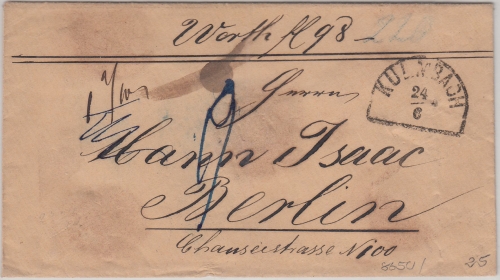 Werth fl 98 226
KULMBACH
24
6
Herrn
Mann Isaac
Berlin
Chausseestrasse N 100
25